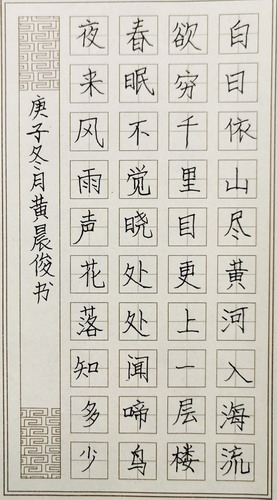 白日依山尽黄河入海流
欲穷千里目更上一层楼
春眠不觉晓处处闻啼鸟
夜来风雨声花落知多少
庚子冬月黄晨俊书